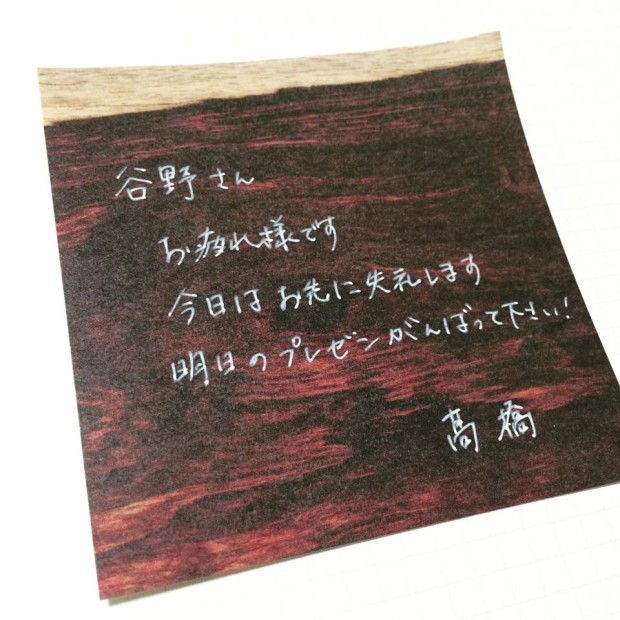 谷野さん
お疲れ様です
今日はお先に失礼します
明日のプレゼンがんばって下さい!
髙橋